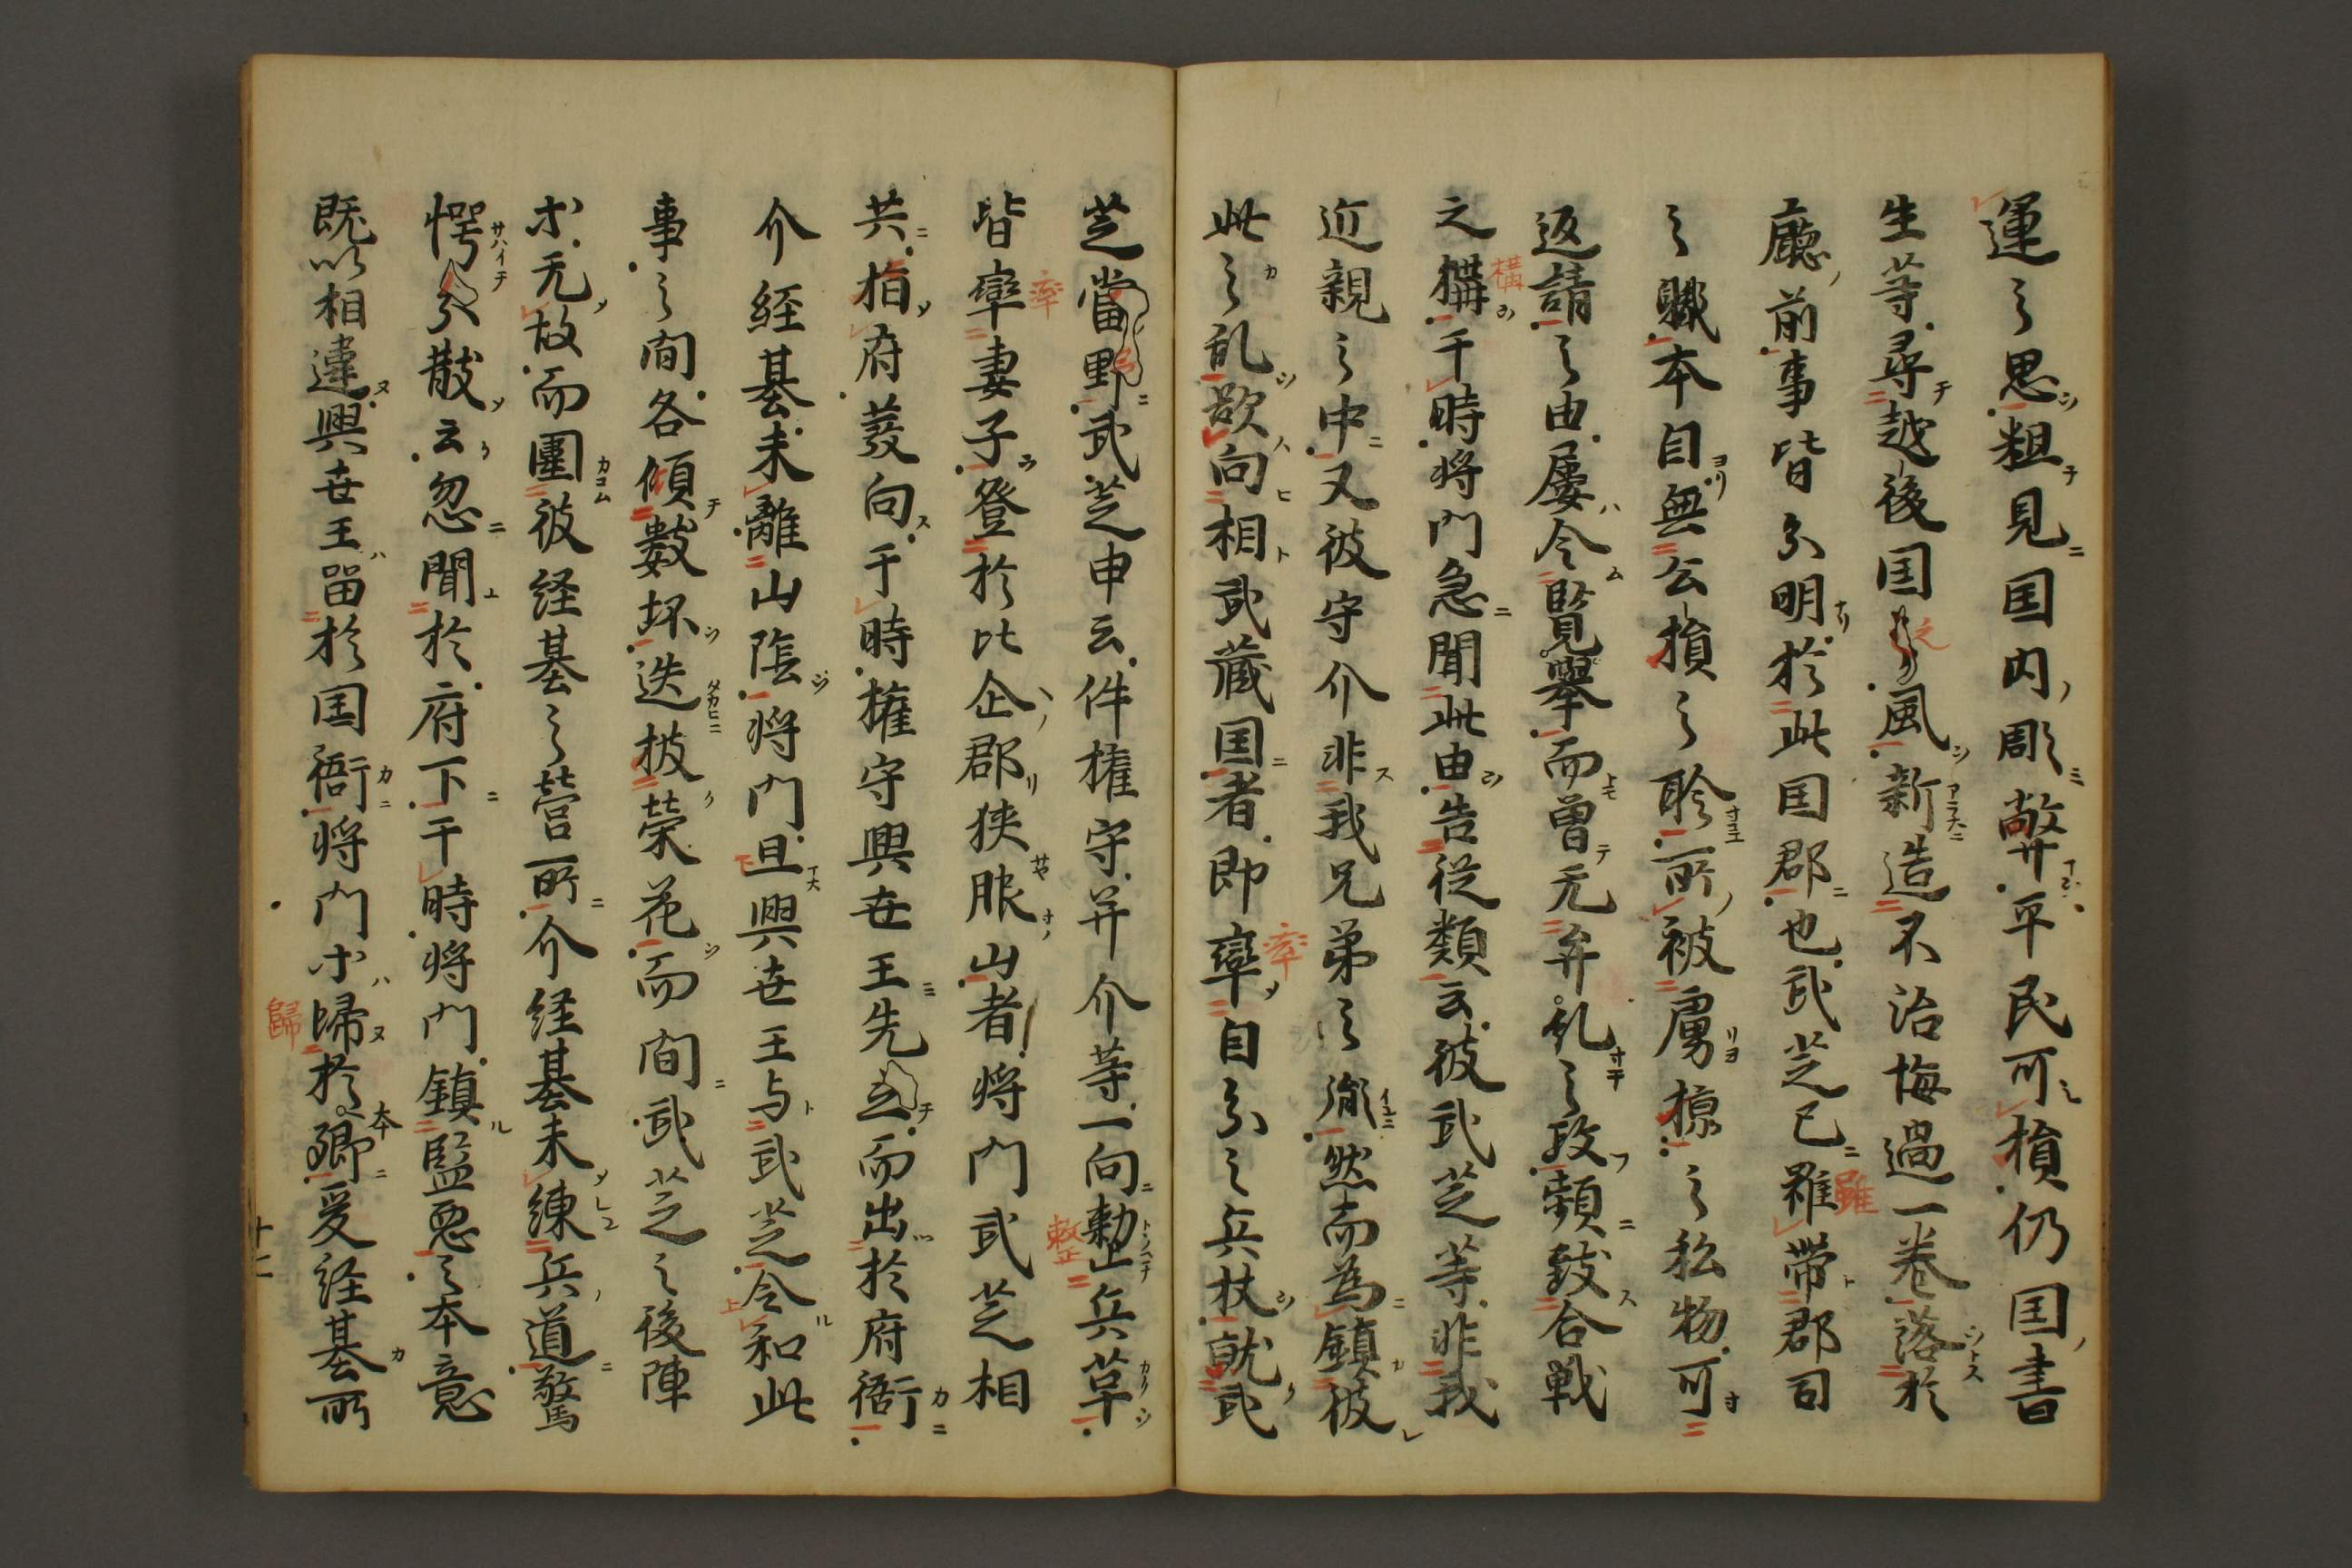 運之思粗見国内彫弊平民可損仍国書
生等尋越後国之風新造不治悔過一巻落於
廳前事皆分明於此国郡也武芝已雖帯郡司
之職本自無公損之聆所被虜掠之私物可
返請之由屡令覧挙而曽无弁糺之政頻致合戦
之構于時将門急聞此由告従類云彼武芝等非我
近親之中又彼守介非我兄弟之胤然而為鎮彼
此之乱欲向相武蔵国者即率自分之兵杖就武
芝當野武芝申云件権守并介等一向整兵革
皆率妻子登於比企郡狭服山者将門武芝相
共指府発向于時権守興世王先立而出於府衙
介経基未離山陰将門且興世王与武芝令和此
事之間各傾数坏迭披榮花而間武芝之後陣
等无故而圍彼経基之営所介経基未練兵道驚
愕分散云忽聞於府下于時将門鎮監悪之本意
既以相違興世王留於国衙将門等帰於本郷爰経基所
十二